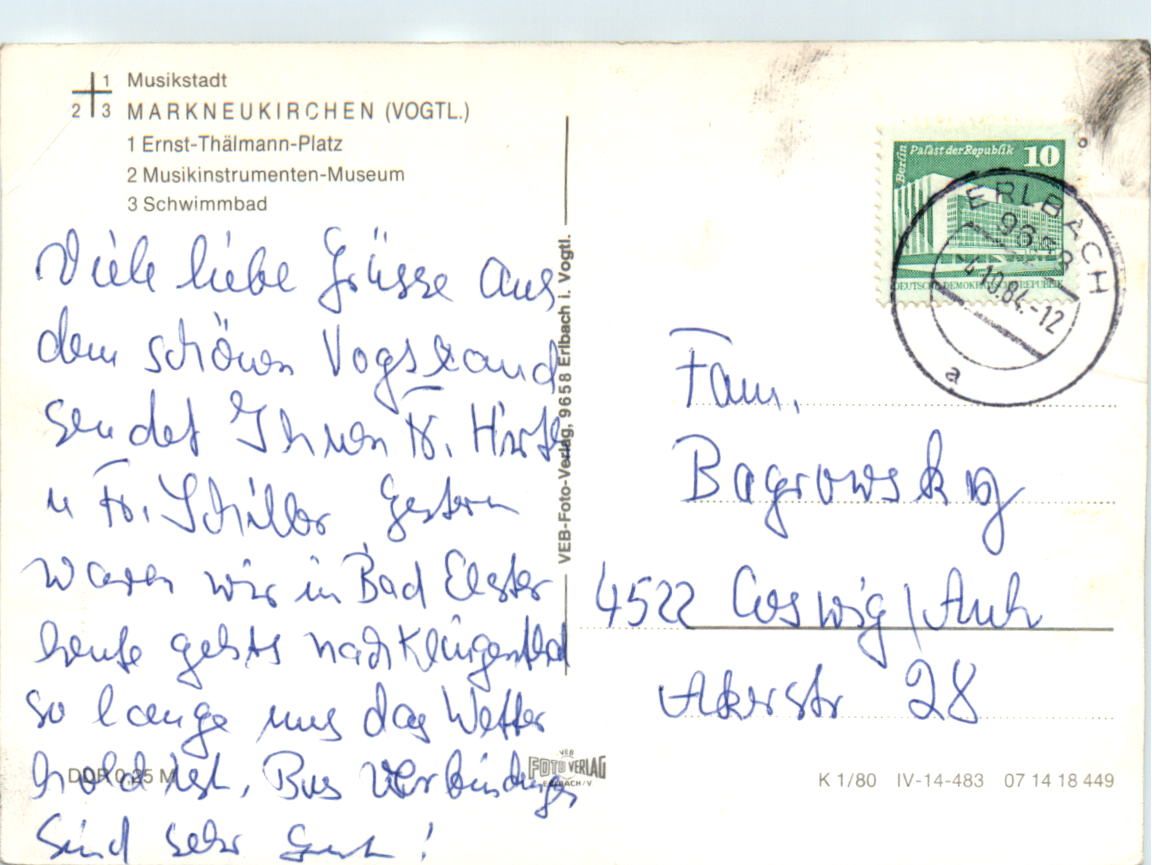 1 Musikstadt
2 3 MARKNEUKIRCHEN (VOGTL.)
1 Ernst-Thälmann-Platz
2 Musikinstrumenten-Museum
3 Schwimmbad
Viele liebe Grüsse aus
dem schönen Vogtland
sendet Ihnen Fr.
u Fr. Schiller Gestern
waren wir in Bad Elster
heute gehts nach Klingenthal
so lange uns das Wetter
hold ist, Bus Verbindungen
sind sehr gut!
DDR 0,25 M
VEB-Foto-Verlag, 9658 Erlbach i. Vogtl.
VEB
FOTO VERLAG
ERLBACH/V
Berlin Palast der Republik 10
DEUTSCHE DEMOKRATISCHE REPUBLIK
ERLBACH
4.10.84.-12
a
Fam.
Bagrowsky
4522 Coswig/Anh
Akerstr 28
K 1/80 IV-14-483 07 14 18 449